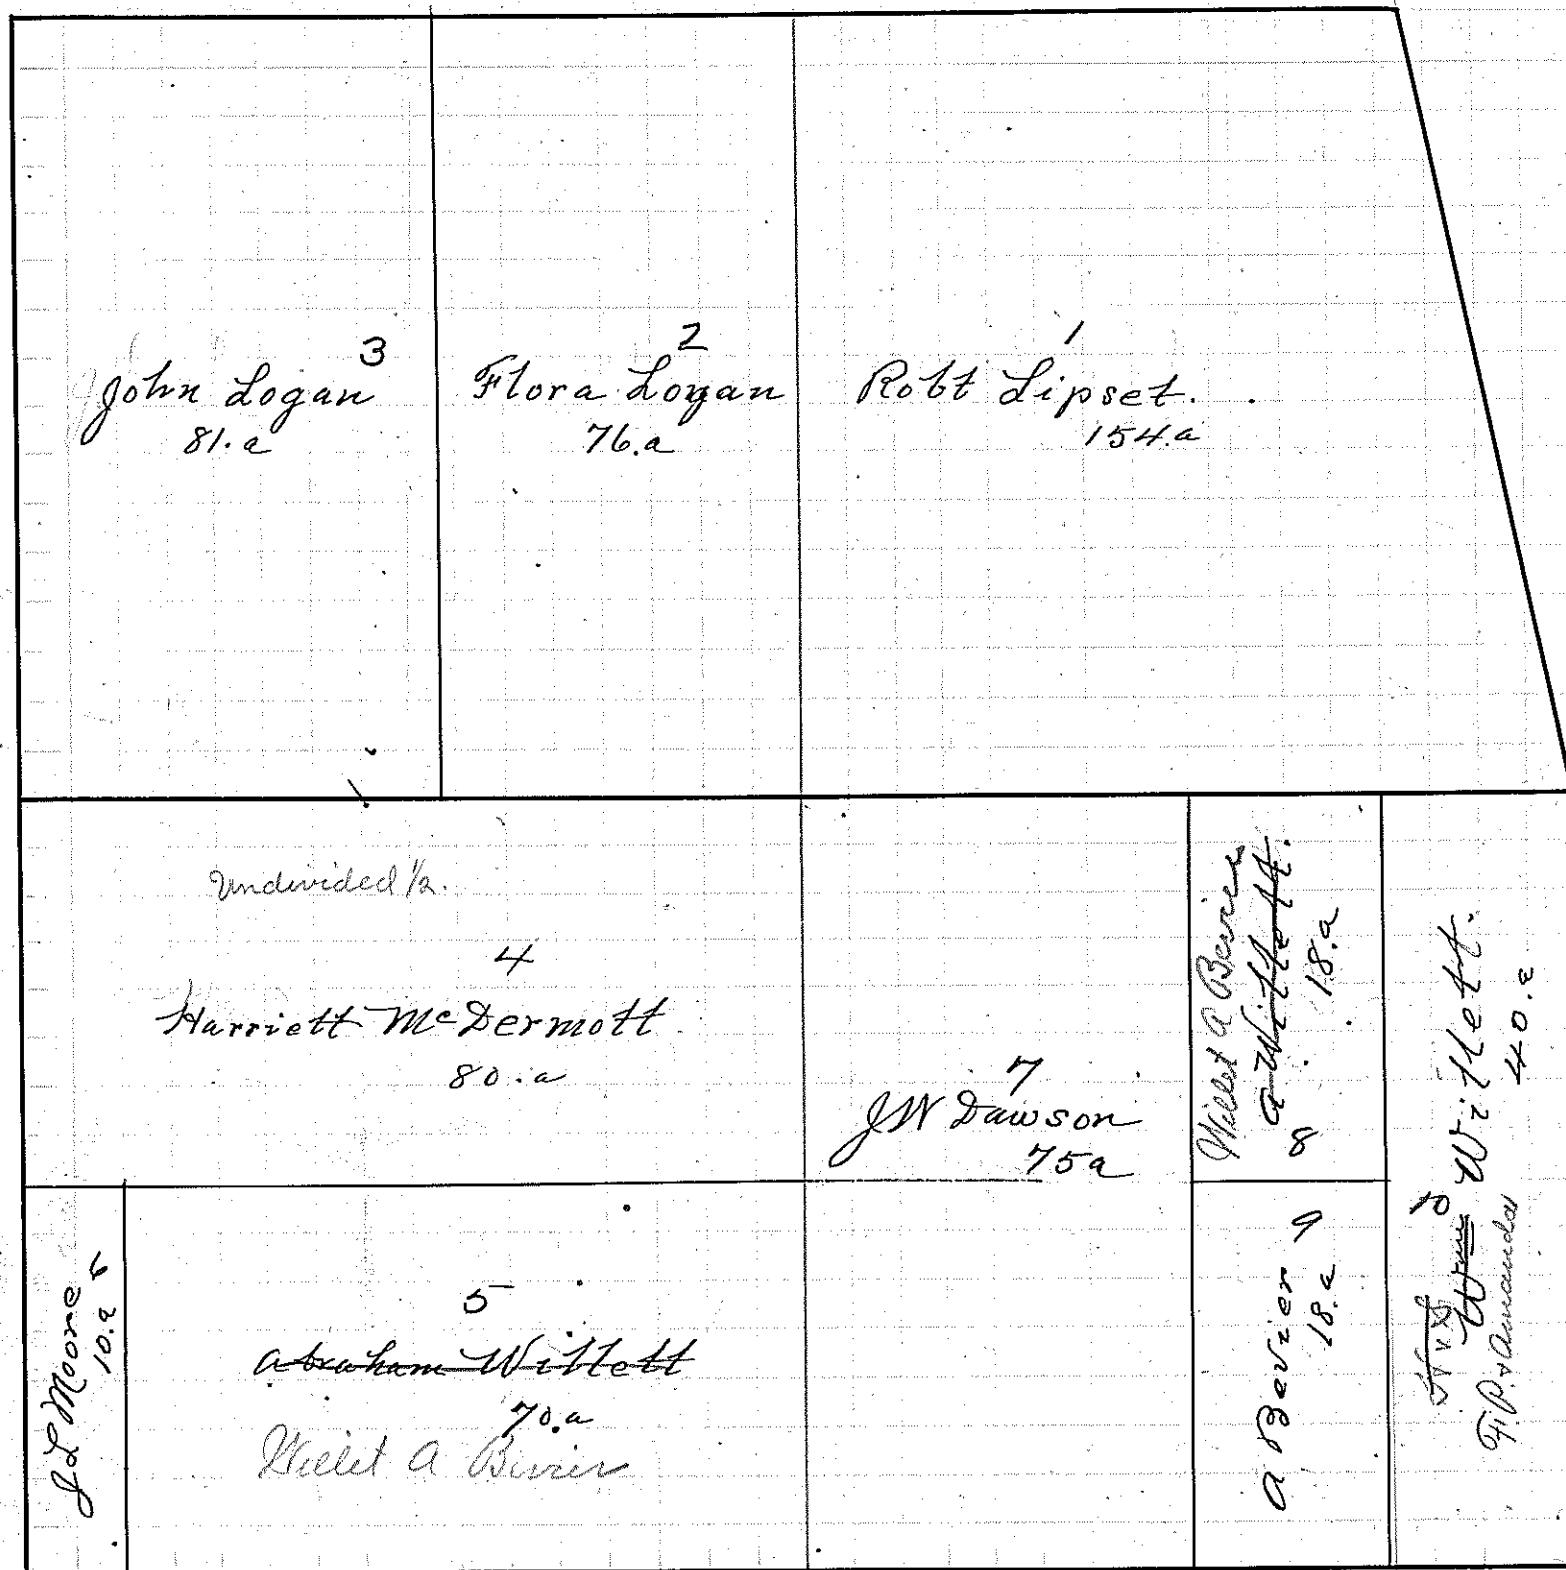 3
John Logan
81.a
2
Flora Logan
76.a
1
Robt Lipset.
154.a
Undivided 1/2.
4
Harriett McDermott
80.a
7
JW Dawson
75a
Willet A Bevier
A Willett.
18.a
8
Willett.
40.a
10
Wm
F.P. & Amanda
J L Moore 6
10.a
5
Abraham Willett
70.a
Willet A Bevier
A Bevier 9
18.a